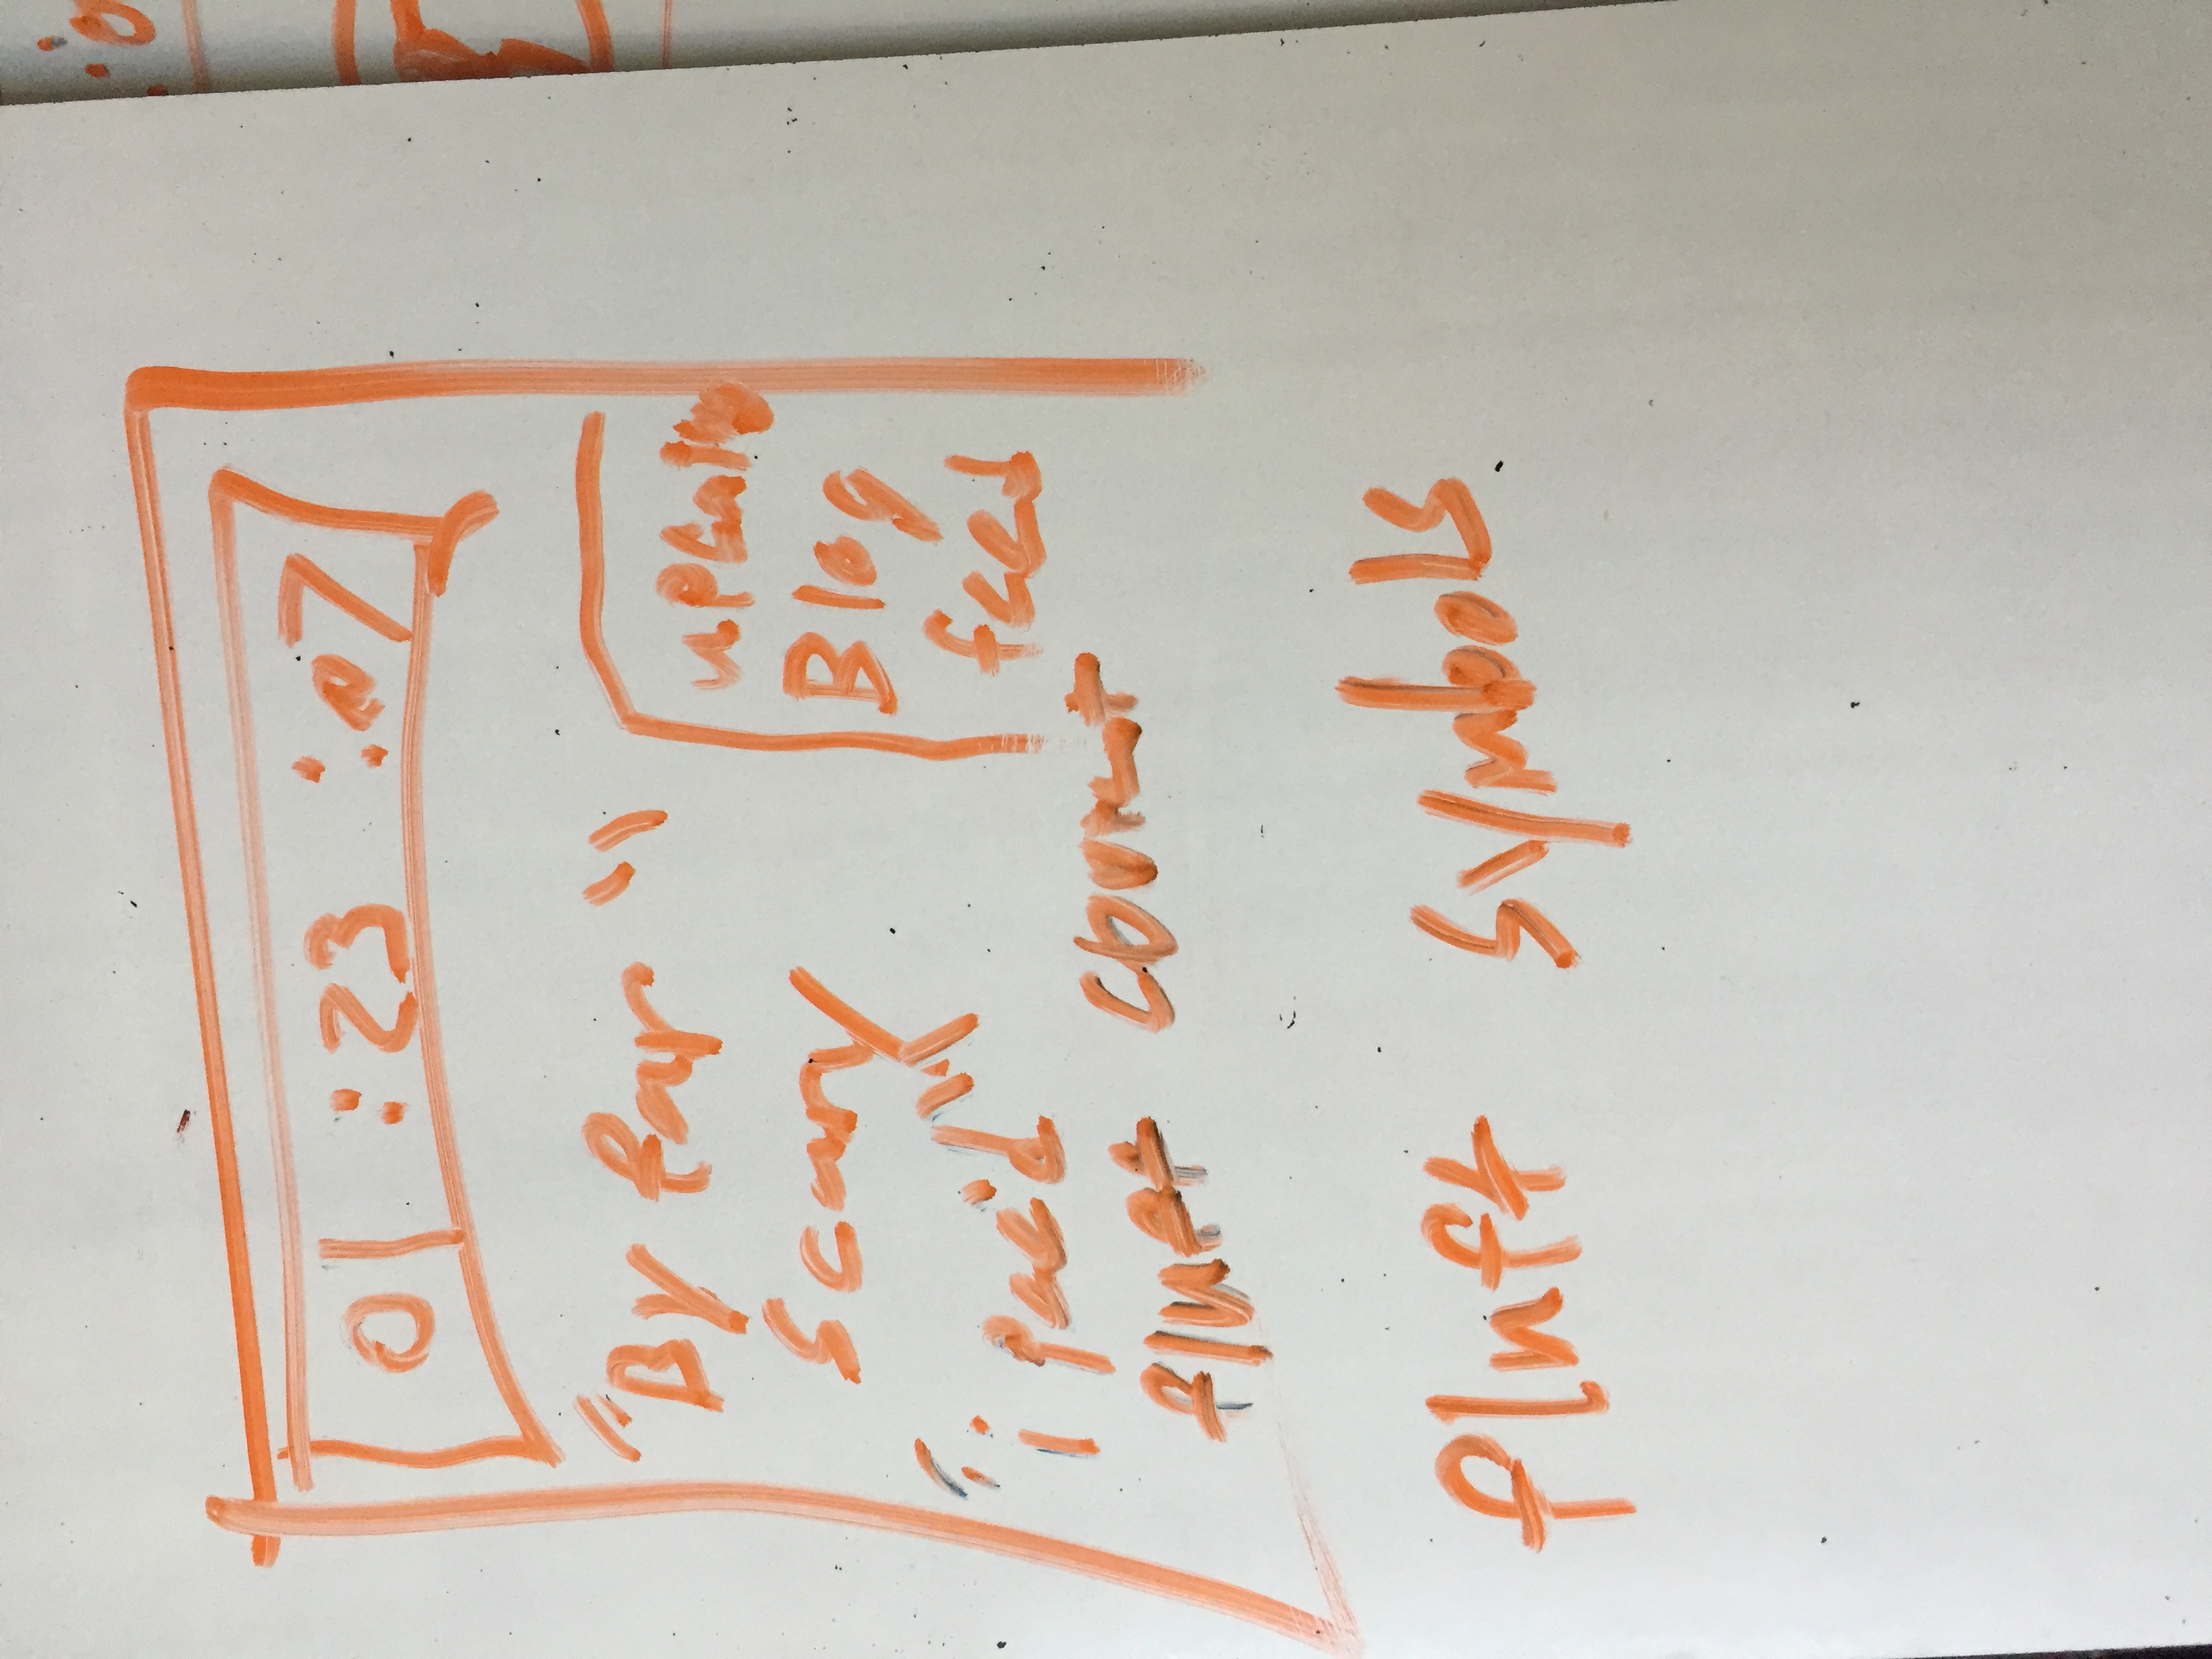 01 :23 :07
"By far"
scary
"i pee'd"
fluft count
Blog
feed
fluft symbols